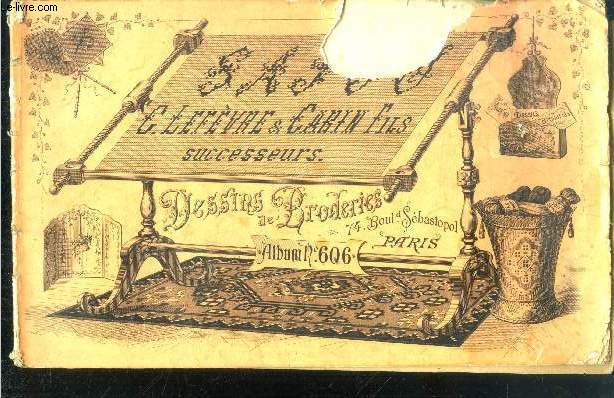 e-livre.com
SAJOU
E. LEFÈVRE & CABIN Fils
successeurs.
Dessins
de Broderies
74. Boul.d Sébastopol
PARIS
Album No. 606